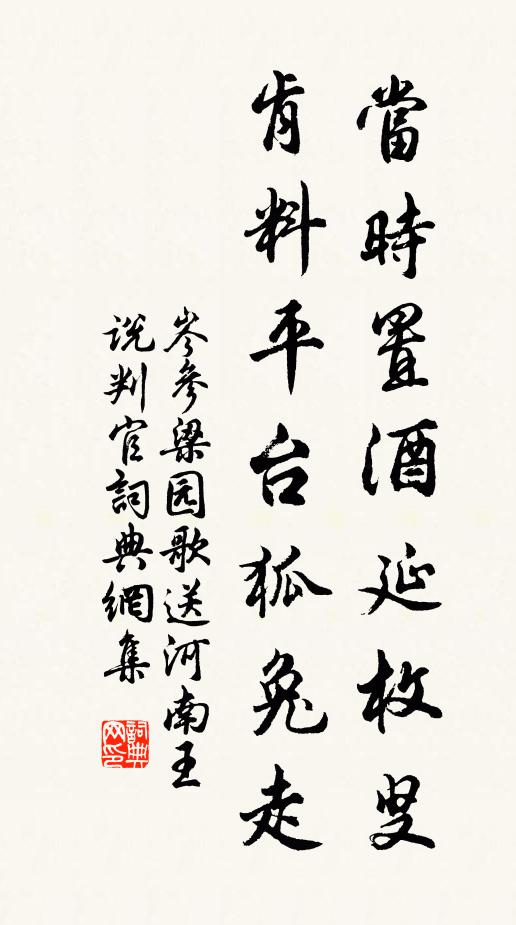 當時置酒延枚叟
肯料平台狐兔走
岑參梁园歌送河南王
説判官詞典網集
詞典网印